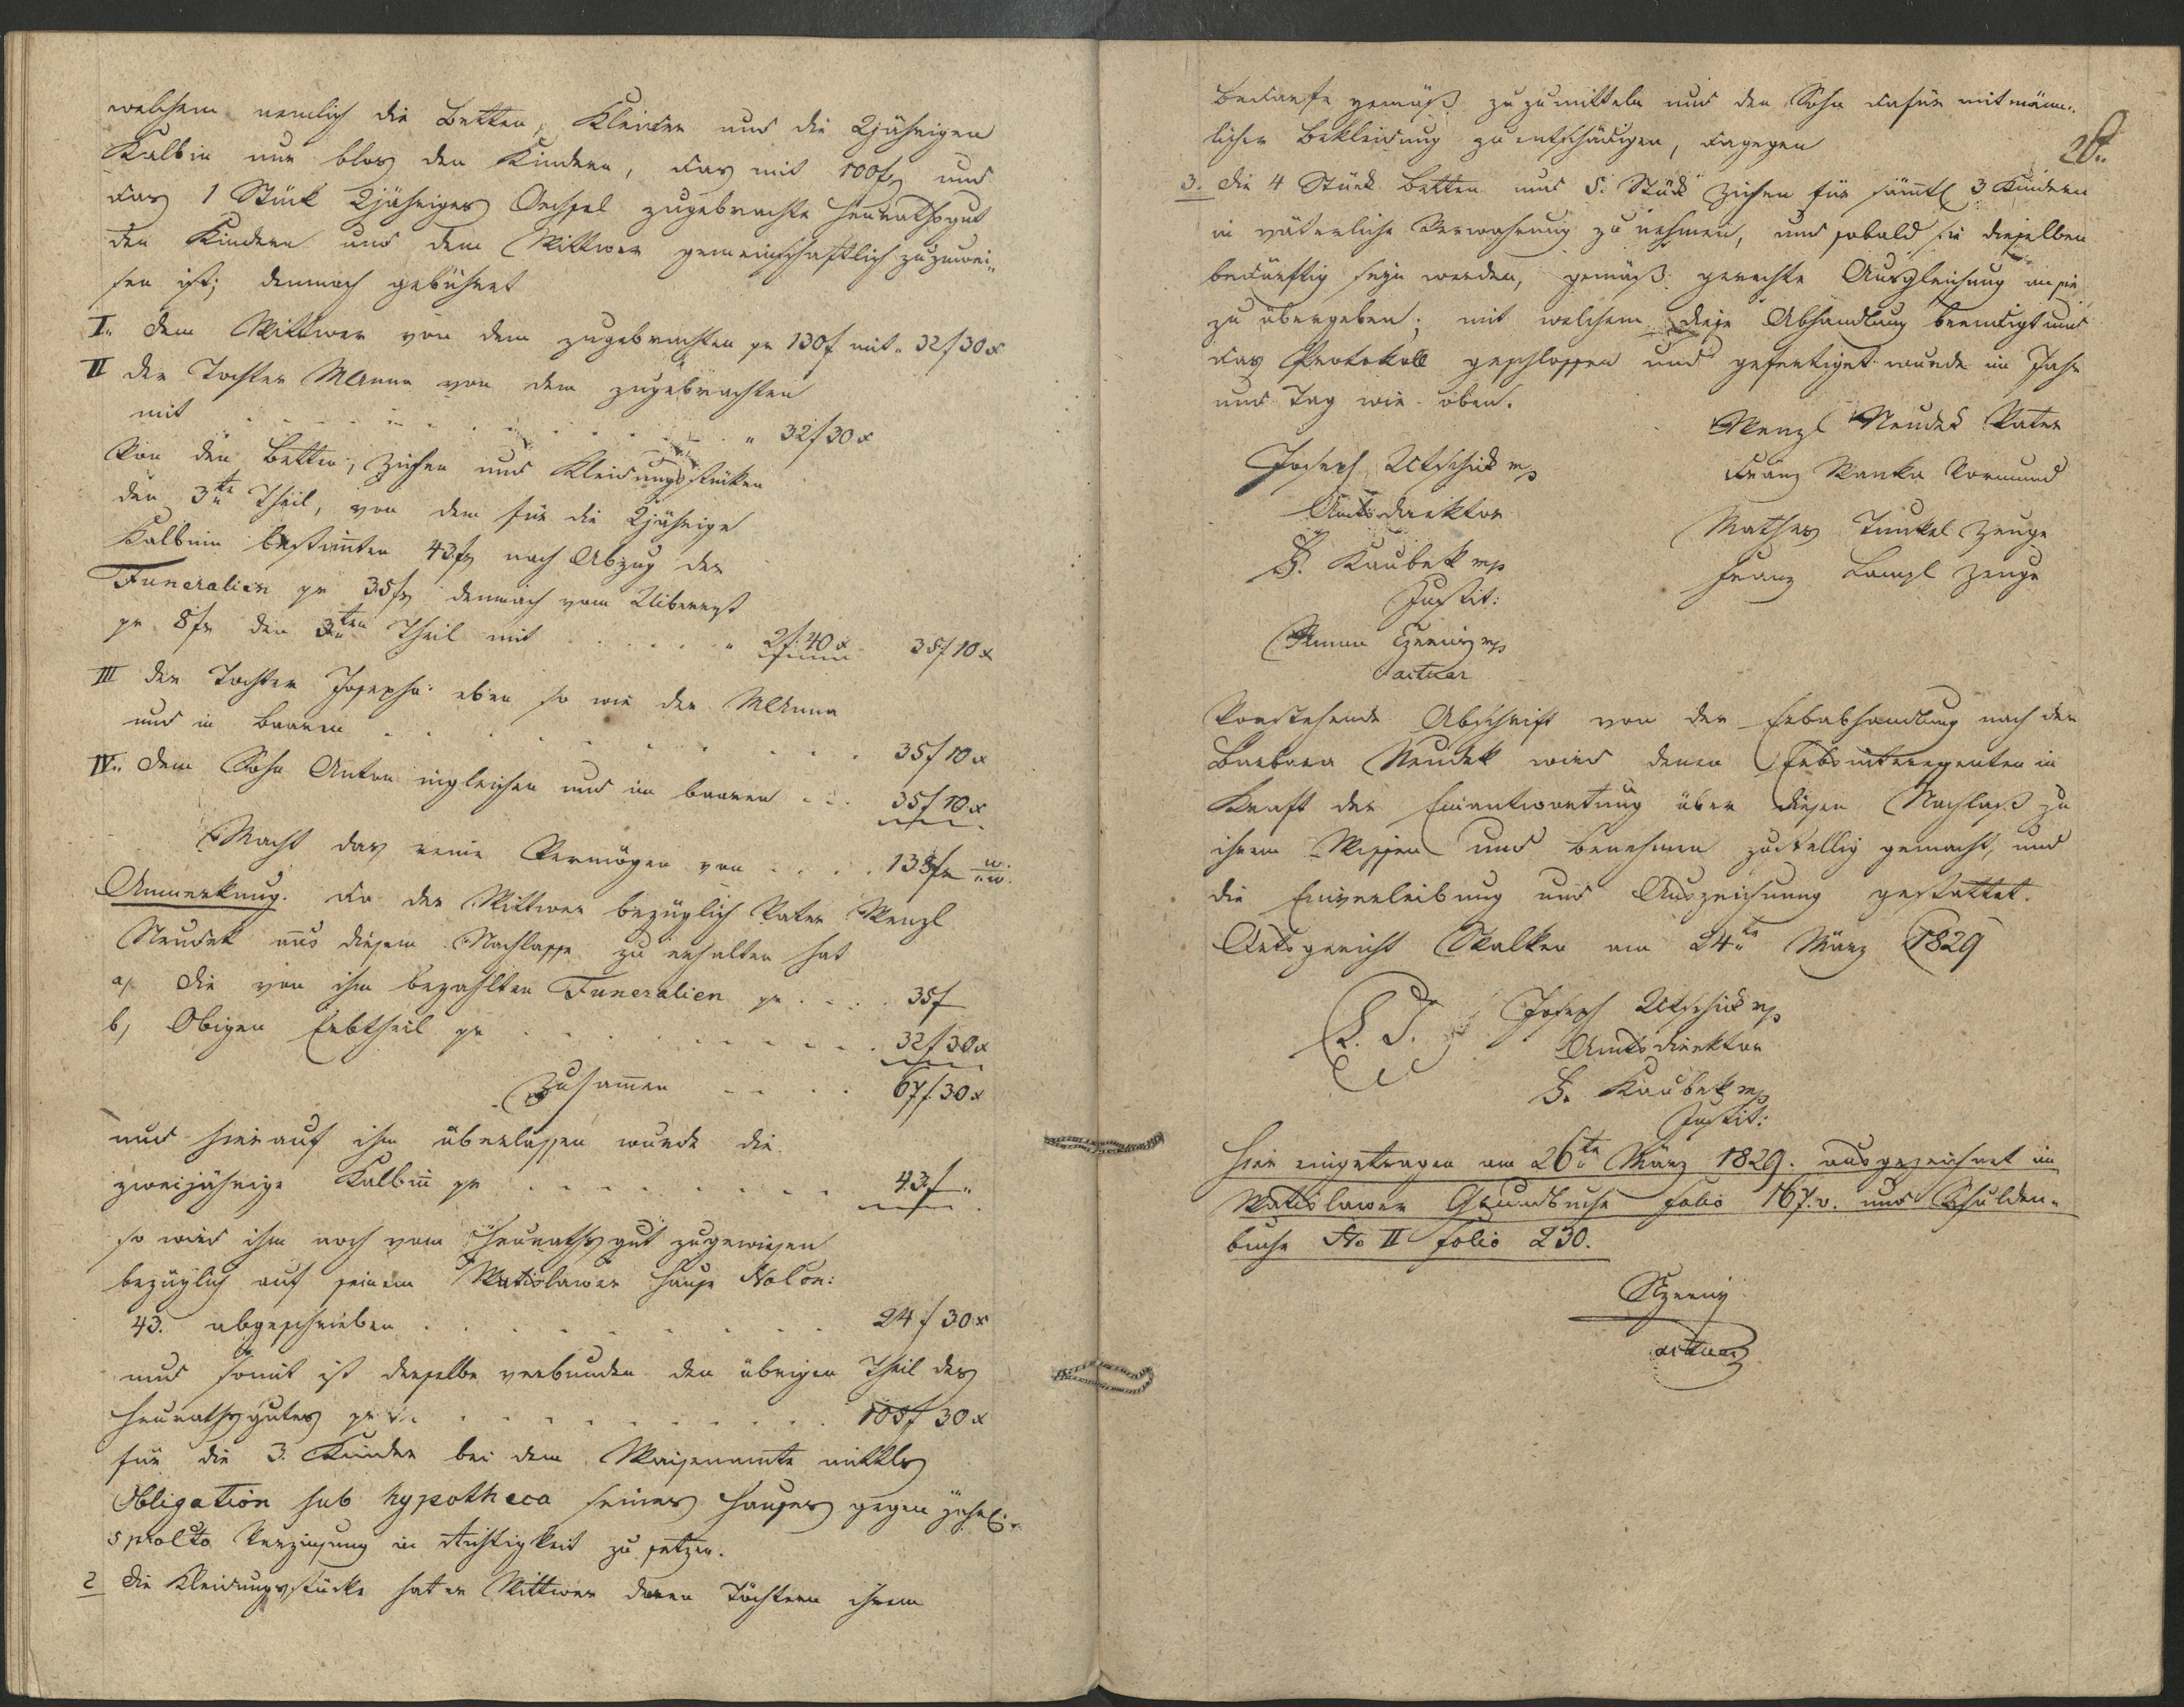 welchem nemlich die Betten, Kleider und die 2jährigen
Kalbin nur blos den Kindern, das mit 100f und
das 1 Stück 2jähriges Oechsel zugebrachte Heurathsgut
den Kindern und dem Wittwer gemeinschaftlich zuzuwei„
sen ist; demnach gebühret
I. dem Wittwer von dem zugebrachten pr 130f mit „ 32f 30x
II der Tochter MAnna von dem zugebrachten
mit . . . . . . . . . „ 32f 30x
Von den Betten, Ziehen und Kleidungsstücken
den 3te Theil, von dem für die 2jährige
Kalbinn bestimten 43f nach Abzug der
Funeralien pr 35f demnach vom Uiberrest
pr 8f den 3ten Theil mit . . . . . „ 2f 40x 35f 10x
III der Tochter Josepha eben so wie der MAnna
und in Baaren . . . . . . . . . 35f 10x
IV. dem Sohn Anton ingleichen und im baaren . . . 35f 10x
Macht das reine Vermögen von . . . . 138f
Anmerkung. da der Wittwer bezüglich Vater Wenzl
Neudek aus diesem Nachlasse zu erhalten hat
a, die von ihm bezahlten Funeralien pr . . . . 35f
b, Obigen Erbtheil pr . . . . . . . . 32f 30x
Zusamen . . . . 67f 30x
und hierauf ihm überlassen wurde die
zweijährige Kalbin pr . . . . . . . . 43f „
so wird ihm noch vom Heurathsgut zugewiesen
bezüglich auf seinem Watislawer Hause NoCon:
43. abgeschrieben . . . . . . . . . 24f 30x
und somit ist derselbe verbunden den übrigen Theil des
Heurathsgutes pr . . . . . . . . . 105f 30x
für die 3. Kinder bei dem Waisenamte mittels
Obligation sub hypotheca seines Hauses gegen jährl:
5 prolto Verzinsung in Richtigkeit zu setzen.
2 die Kleidungsstücke hat er Wittwer denen Töchtern ihrem
Bedarfe gemäß zuzumitteln und den Sohn dafür mit männ„
licher Bekleidung zu entschädigen, dagegen
3. die 4 Stück Betten und 5. Stück Ziehen für sämtl 3 Kindern
in väterliche Verwahrung zu nehmen, und sobald sie dieselben
bedürftig seyn werden, gemäß gerechte Ausgleichung an sie
zu übergeben; mit welchem diese Abhandlung beendigt und
das Protokoll geschlossen und gefertiget wurde im Jahr
und Tag wie oben.
Wenzl Neudek Vater
Joseph Utschick mp
Franz Wanka Vormund
Amtsdirektor
Mathes Tunkel Zeuge
F. Kaubek mp
Franz Lampl Zeuge
Justit:
Czerny mp
actuar
Vorstehende Abschrift von der Erbabhandlung nach der
Barbara Neudek wird denen Erbsinteressenten in
Kraft der Einantwortung über diesen Nachlaß zu
ihrem Wissen und Benehmen zustellig gemacht, und
die Einverleibung und Auszeichnung gestattet.
Ortsgericht Skalken am 24te März 1829
L. S. Joseph Utschick mp
Amtsdirektor
F. Kaubek mp
Justit:
Hier eingetragen am 26te März 1829. ausgezeichnet im
Watislawer Grundbuche folio 167.v. und Schulden„
buche No II folio 230.
Czerny
actuar